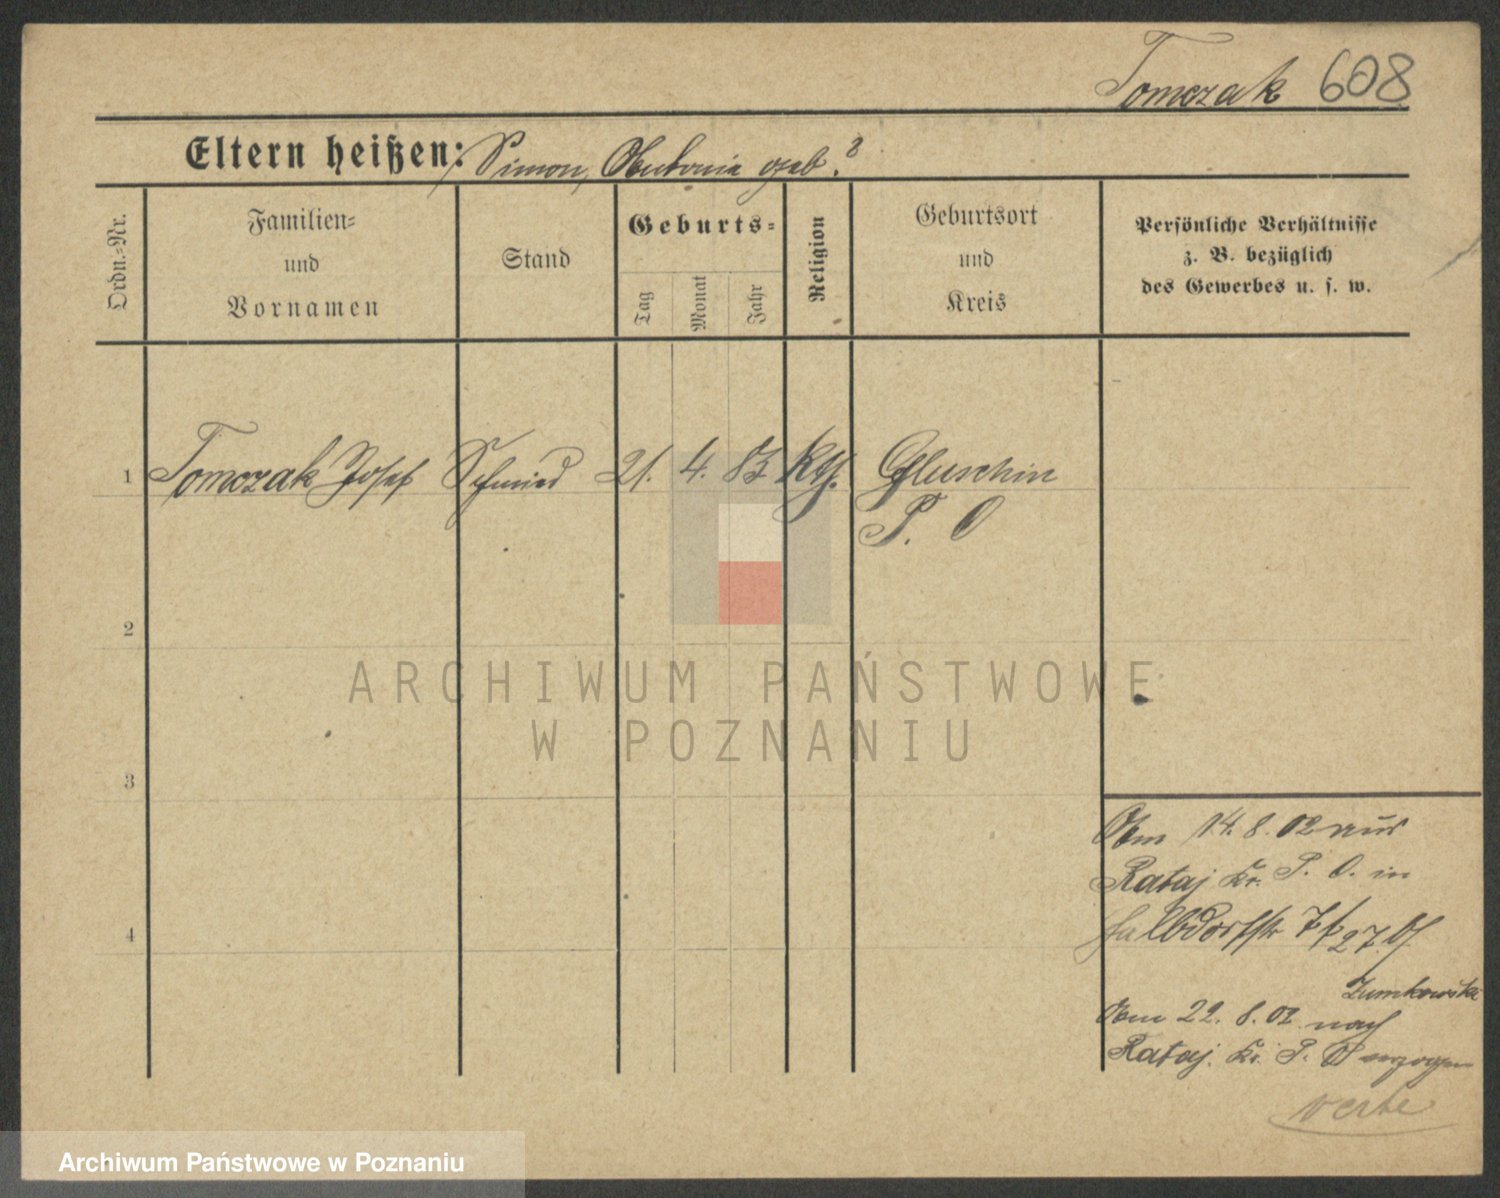 Tomczak 608
Eltern heißen: Simon, Antonie geb. ?
Ordn.=Nr.
Familien=
und
Vornamen
Stand
Geburts=
Tag
Monat
Jahr
Religion
Geburtsort
und
Kreis
Persönliche Verhältnisse
z. B. bezüglich
des Gewerbes u. s. w.
1 Tomczak Josef Schmied 21. 4. 83 kth. Gluschin
P. O
2
3
4
ARCHIWUM PAŃSTWOWE
W POZNANIU
Am 14. 8. 02 aus
Rataj Kr. P. O. in
Halbdorfstr 7 27.
Am 22. 8. 02 nach
Rataj. Kr. P. O verzogen
Archiwum Państwowe w Poznaniu